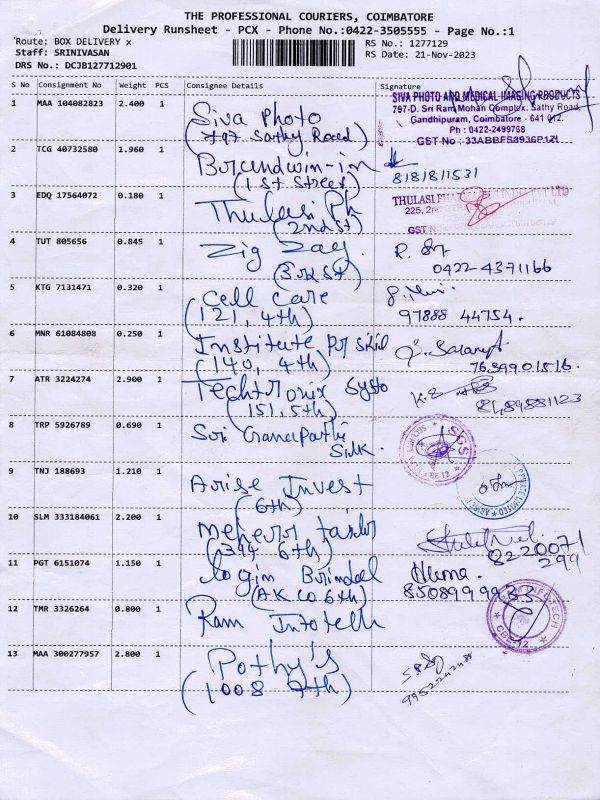 THE PROFESSIONAL COURIERS, COIMBATORE
Delivery Runsheet - PCX - Phone No.:0422-3505555 - Page No.:1
Route: BOX DELIVERY x
Staff: SRINIVASAN
DRS No.: DCJB127712901
RS No.: 1277129
RS Date: 21-Nov-2023
S No Consignment No Weight PCS Consignee Details Signature
1 MAA 104082823 2.400 1 Siva Photo
(797 Sathy Road)
SIVA PHOTO AND MEDICAL IMAGING PRODUCTS
797-D. Sri Ram Mohan Complex, Sathy Road,
Gandhipuram, Coimbatore - 641 012.
Ph : 0422-2499768
GST No : 33ABBFS8936P1Z1
2 TCG 40732580 1.960 1
(1st Street)
8181811531
3 EDQ 17564072 0.180 1 Thulasi Ph
(2nd st)
THULASI
225,
GST
4 TUT 805656 0.845 1 Zig Zag
(3rd st)
0422-4371166
5 KTG 7131471 0.320 1 Cell Care
(121, 4th)
97888 44754.
6 MNR 61084808 0.250 1 Institute
(140, 4th)
7 ATR 3224274 2.900 1 Techtronix Systo
(151, 5th)
8 TRP 5926789 0.690 1 Sri Ganapathi
Silk.
SGS
9 TNJ 188693 1.210 1 Arise Invest
(6th)
PRIVATE LIMITED
10 SLM 333184061 2.200 1
(394 6th)
8220071
299
11 PGT 6151074 1.150 1 Login
(AK CO 6th)
Huma.
8508999933
12 TMR 3326264 0.800 1 Ram Infotech
INFOTECH
CBE-12
13 MAA 300277957 2.800 1 Pothy's
(1008 9th)